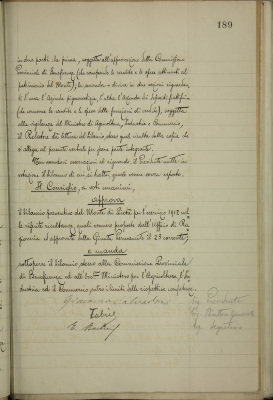 189
in due parti: la prima, soggetta all'approvazione della Commissione
Provinciale di Beneficenza (che comprende le rendite e le spese attinenti al
patrimonio del Monte); la seconda - divisa in due sezioni riguardan-
ti l'una l'Azienda pignoratizia, l'altra l'Azienda dei depositi fruttiferi
(che comprende le rendite e le spese delle di credito), soggetta
alla vigilanza del Ministero di Agricoltura, Industria e Commercio,
il Relatore dà lettura del bilancio stesso quale risulta dalla copia che
si allega al presente verbale per farne parte integrante.
Non essendovi osservazioni al riguardo il Presidente mette in
votazione il bilancio di cui si tratta, quale venne sovra esposto.
Il Consiglio, a voti unanimi,
approva
il bilancio preventivo del Monte di Pietà per l'esercizio 1912 nel-
le rispettive risultanze, quali vennero proposte dall'Ufficio di Ra-
gioneria ed approvate dalla Giunta Permanente il 23 corrente;
e manda
sottoporre il bilancio stesso alla Commissione Provinciale
di Beneficenza ed all' Ministero per l'Agricoltura, l'In-
dustria ed il Commercio entro i limiti delle rispettive competenze.
Il Presidente
Il Direttore Generale
Il Segretario